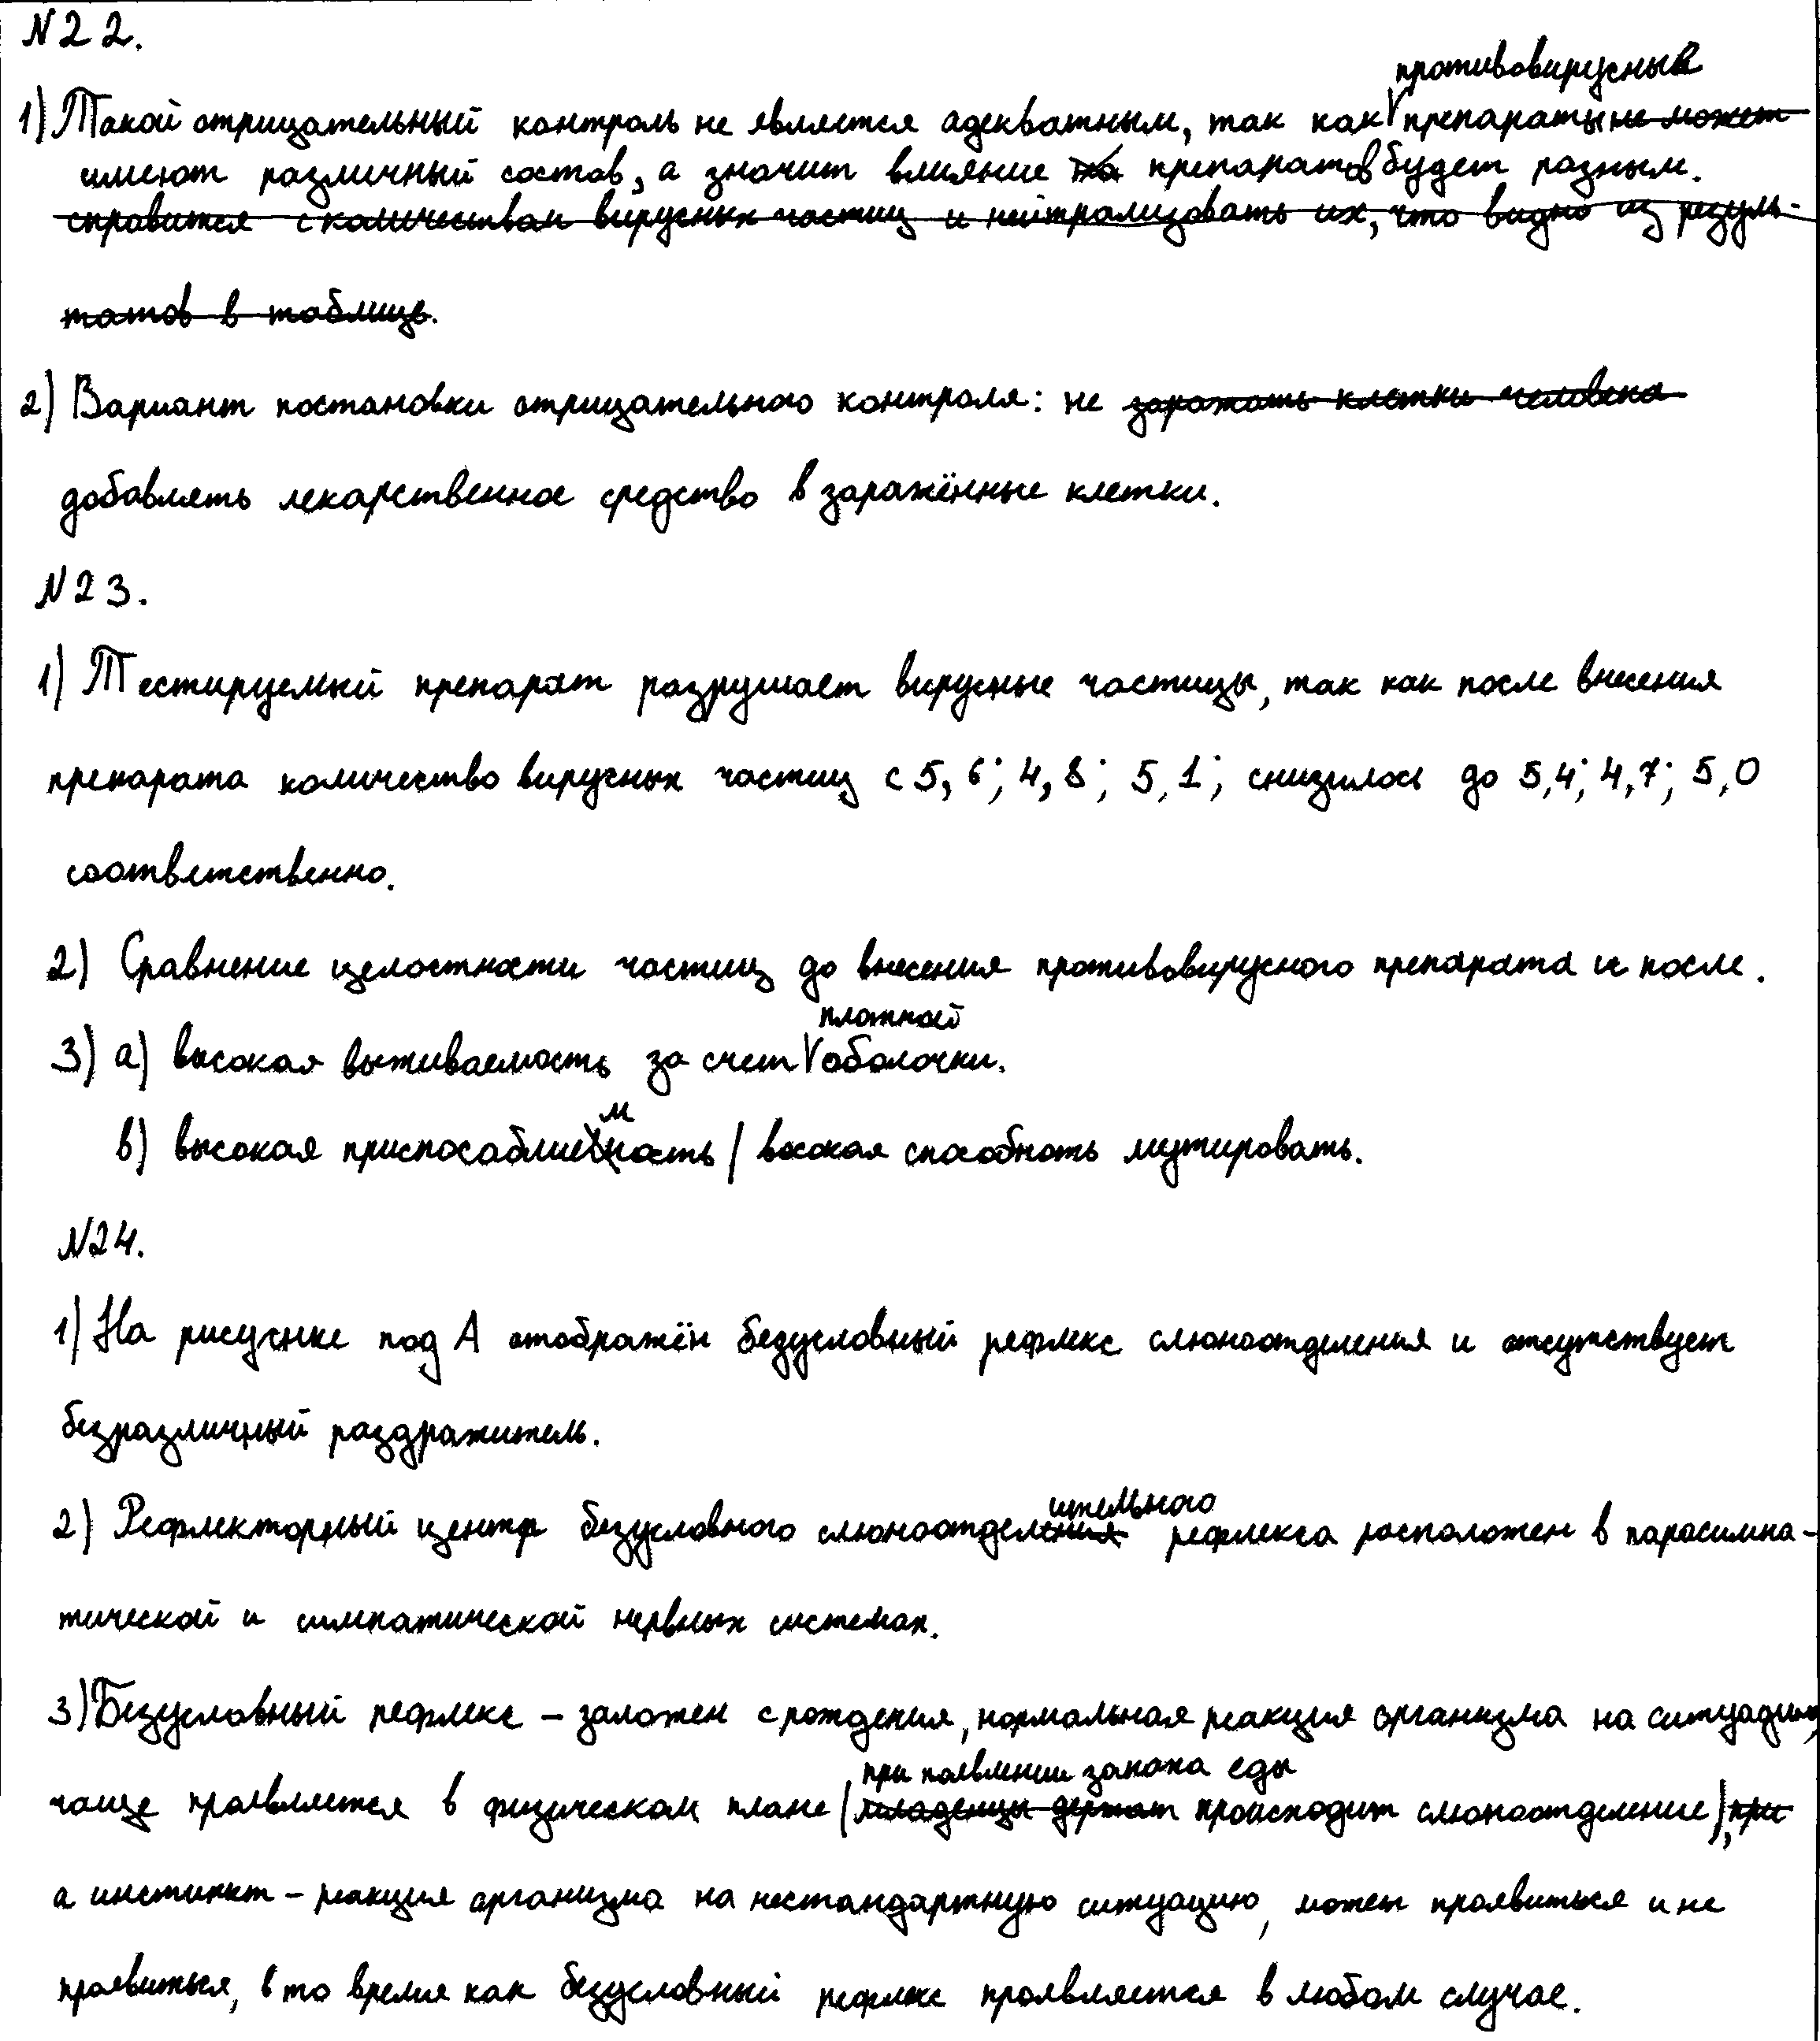 N22.
противовирусные
1) Такой отрицательный контроль не является адекватным, так как препараты не может
имеют различный состав, а значит влияние на препаратов будет разным.
справится с количеством вирусных частиц и нейтрализовать их, что видно из резуль-
татов в таблице.
2) Вариант постановки отрицательного контроля: не заражать клетки человека
добавлять лекарственное средство в заражённые клетки.
N23.
1) Тестируемый препарат разрушает вирусные частицы, так как после внесения
препарата количество вирусных частиц с 5,6; 4,8; 5,1; снизилось до 5,4; 4,7; 5,0
соответственно.
2) Сравнение целостности частиц до внесения противовирусного препарата и после.
плотной
3) а) высокая выживаемость за счет оболочки.
в) высокая приспосабливаемость / высокая способность мутировать.
N24.
1) На рисунке под А отображён безусловный рефлекс слюноотделения и отсутствует
безразличный раздражитель.
2) Рефлекторный центр безусловного слюноотделительного рефлекса расположен в парасимпа-
тической и симпатической нервных системах.
3) Безусловный рефлекс – заложен с рождения, нормальная реакция организма на ситуацию,
при появлении запаха еды
чаще проявляется в физическом плане (младенцы держат происходит слюноотделение), при
а инстинкт – реакция организма на нестандартную ситуацию, может проявиться и не
проявиться, в то время как безусловный рефлекс проявляется в любом случае.